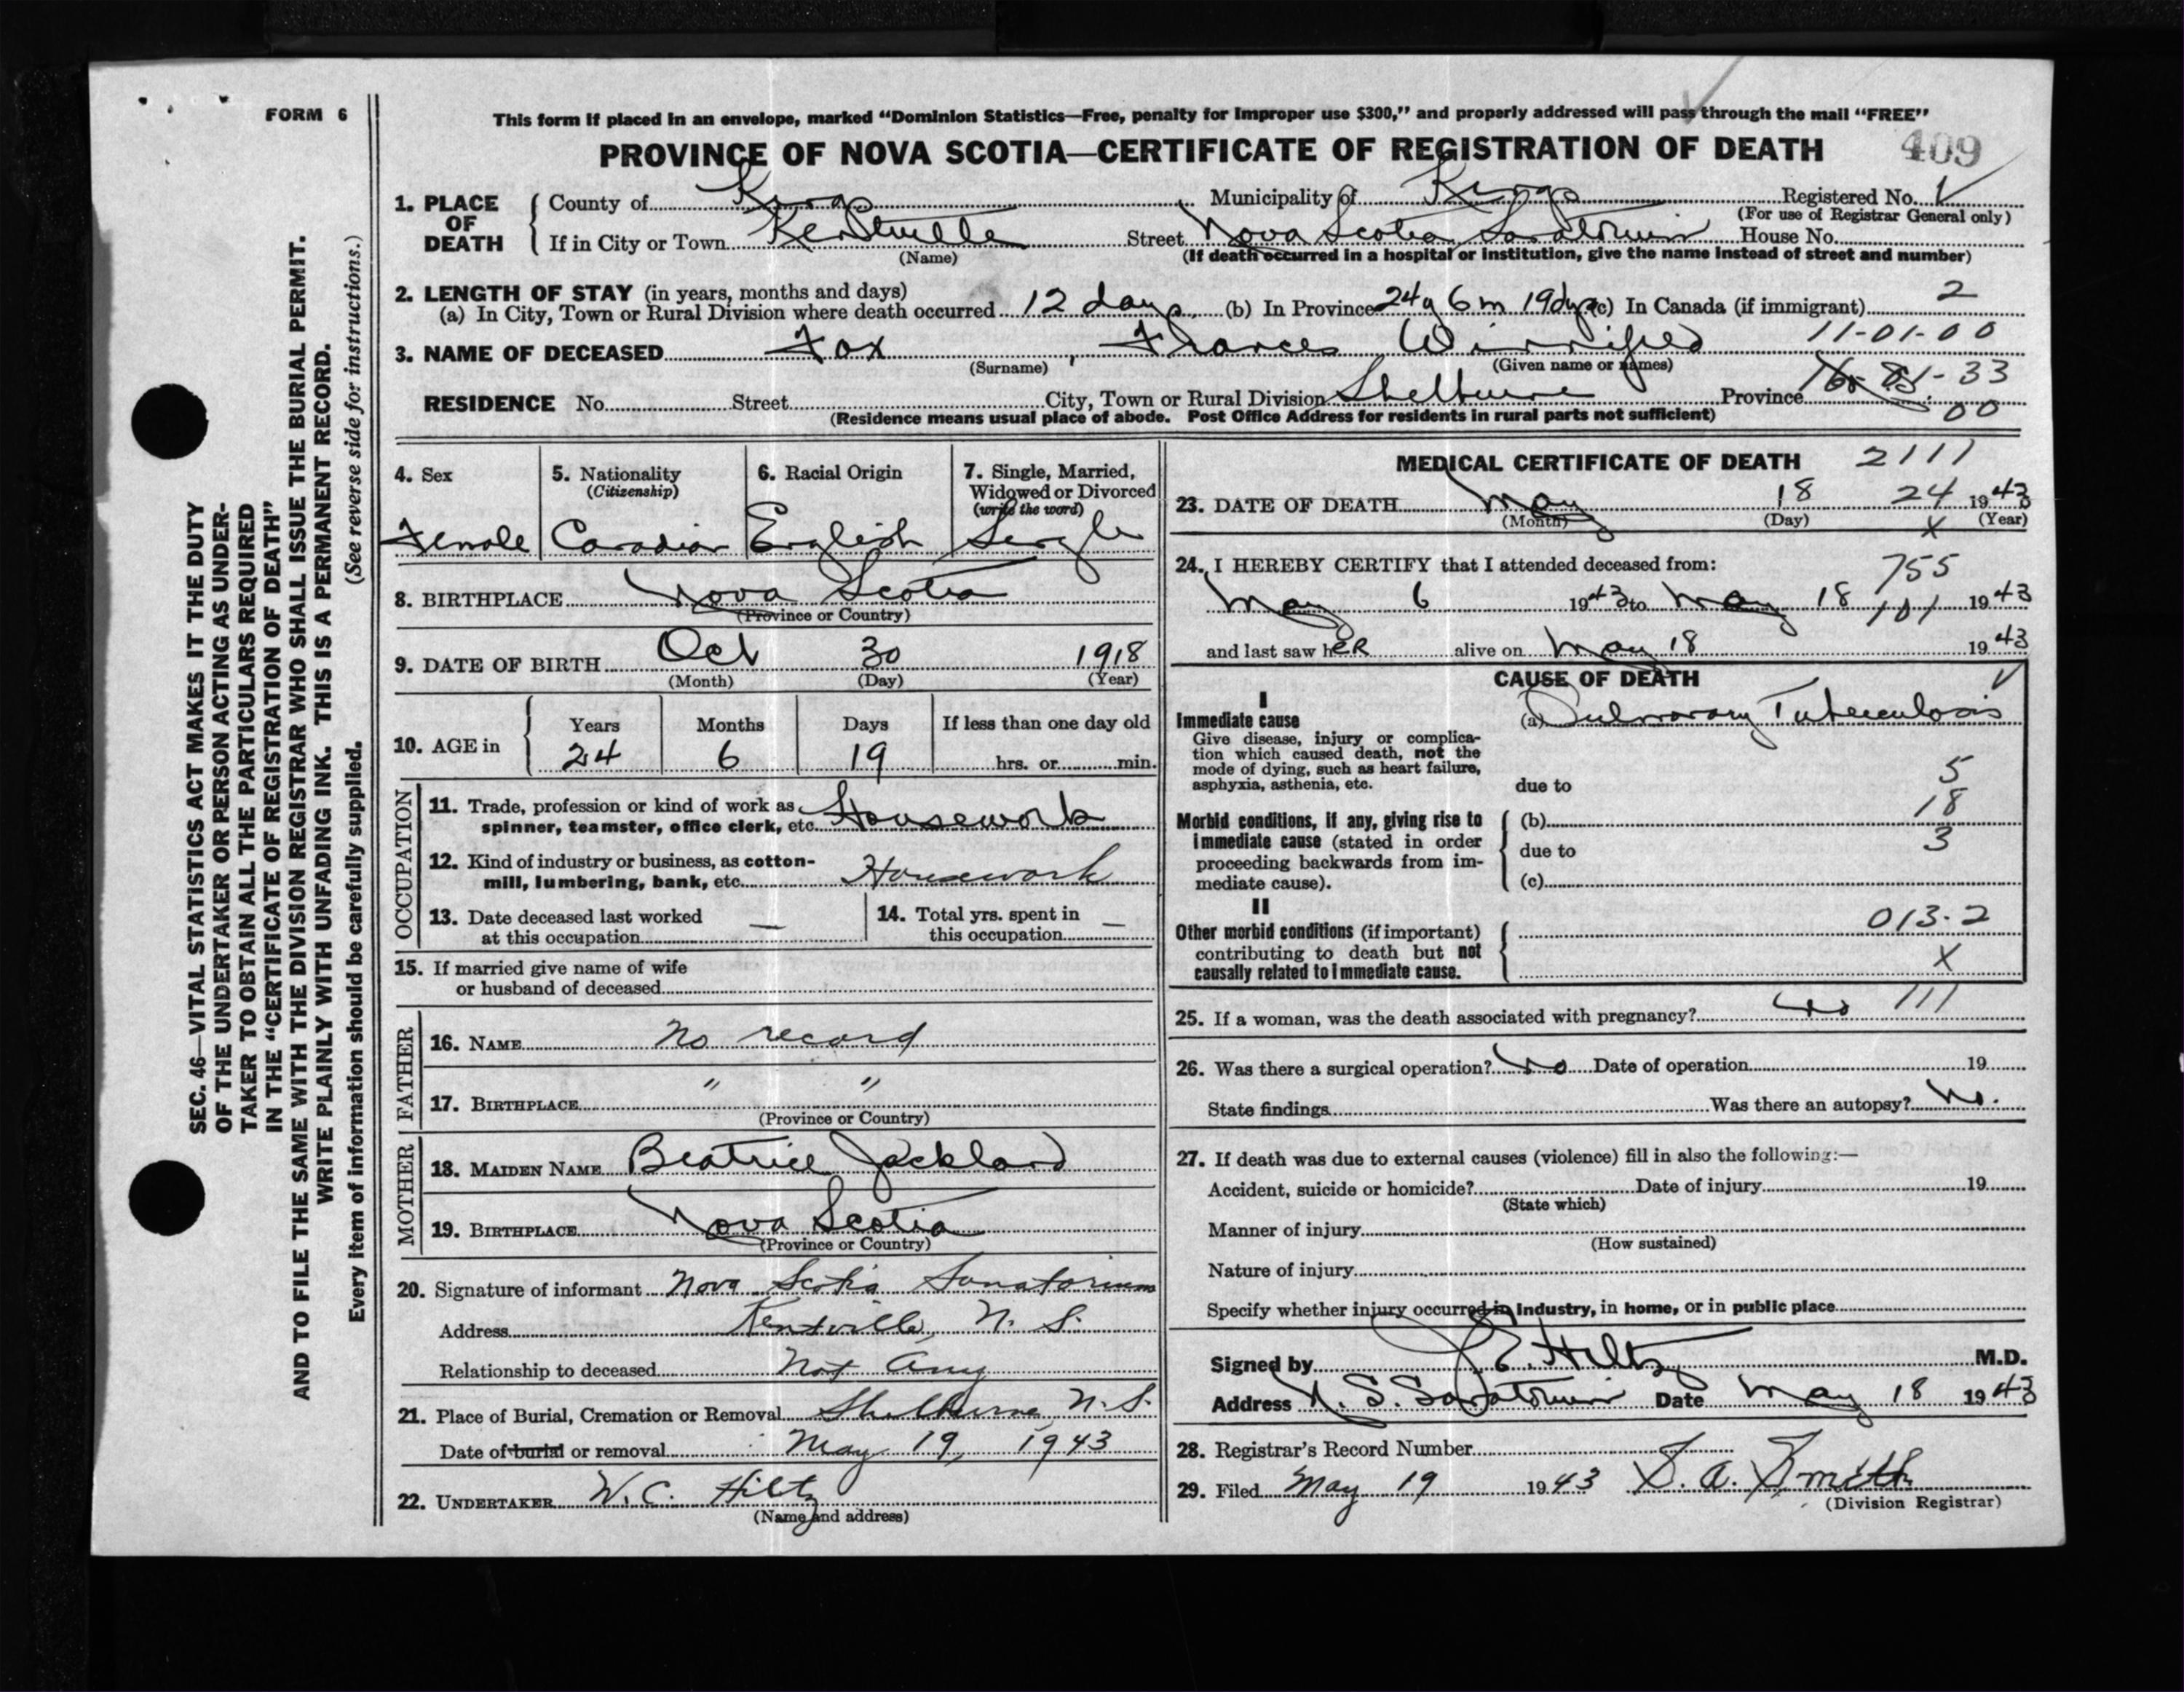 FORM 6
This form if placed in an envelope, marked “Dominion Statistics—Free, penalty for improper use $300,” and properly addressed will pass through the mail “FREE”
PROVINCE OF NOVA SCOTIA—CERTIFICATE OF REGISTRATION OF DEATH 409
1. PLACE OF DEATH
County of Kings Municipality of Kings Registered No.
(For use of Registrar General only)
If in City or Town Kentville Street Nova Scotia Sanatorium House No.
(Name) (If death occurred in a hospital or institution, give the name instead of street and number)
2. LENGTH OF STAY (in years, months and days)
(a) In City, Town or Rural Division where death occurred 12 days (b) In Province 24 y 6 m 19 dys (c) In Canada (if immigrant) 2
11-01-00
3. NAME OF DECEASED Fox, Frances Winnifred
(Surname) (Given name or names)
RESIDENCE No. Street City, Town or Rural Division Shelburne Province 33
00
(Residence means usual place of abode. Post Office Address for residents in rural parts not sufficient)
4. Sex Female
5. Nationality (Citizenship) Canadian
6. Racial Origin English
7. Single, Married, Widowed or Divorced (write the word) Single
8. BIRTHPLACE Nova Scotia
(Province or Country)
9. DATE OF BIRTH Oct 30 1918
(Month) (Day) (Year)
10. AGE in Years 24 Months 6 Days 19 If less than one day old hrs. or min.
OCCUPATION
11. Trade, profession or kind of work as spinner, teamster, office clerk, etc. Housework
12. Kind of industry or business, as cotton-mill, lumbering, bank, etc. Housework
13. Date deceased last worked at this occupation —
14. Total yrs. spent in this occupation —
15. If married give name of wife or husband of deceased
FATHER
16. NAME No record
17. BIRTHPLACE " "
(Province or Country)
MOTHER
18. MAIDEN NAME Beatrice Jackland
19. BIRTHPLACE Nova Scotia
(Province or Country)
20. Signature of informant Nova Scotia Sanatorium
Address Kentville, N. S.
Relationship to deceased Not Any
21. Place of Burial, Cremation or Removal Shelburne, N. S.
Date of burial or removal May 19, 1943
22. UNDERTAKER W. C. Hiltz
(Name and address)
MEDICAL CERTIFICATE OF DEATH 2111
23. DATE OF DEATH May 18 24 1943
(Month) (Day) X (Year)
24. I HEREBY CERTIFY that I attended deceased from: 755
May 6 1943 to May 18 101 1943
and last saw her alive on May 18 1943
CAUSE OF DEATH
I
Immediate cause (a) Pulmonary Tuberculosis
Give disease, injury or complica-
tion which caused death, not the
mode of dying, such as heart failure,
asphyxia, asthenia, etc. due to 5
18
Morbid conditions, if any, giving rise to (b)
immediate cause (stated in order due to 3
proceeding backwards from im-
mediate cause). (c)
II
Other morbid conditions (if important) 013-2
contributing to death but not
causally related to immediate cause. X
25. If a woman, was the death associated with pregnancy? No 111
26. Was there a surgical operation? No Date of operation 19
State findings Was there an autopsy? No.
27. If death was due to external causes (violence) fill in also the following:—
Accident, suicide or homicide? Date of injury 19
(State which)
Manner of injury
(How sustained)
Nature of injury
Specify whether injury occurred in industry, in home, or in public place
Signed by J. E. Hiltz M.D.
Address N. S. Sanatorium Date May 18 1943
28. Registrar's Record Number
29. Filed May 19 1943 S. A. Smith
(Division Registrar)
SEC. 46—VITAL STATISTICS ACT MAKES IT THE DUTY
OF THE UNDERTAKER OR PERSON ACTING AS UNDER-
TAKER TO OBTAIN ALL THE PARTICULARS REQUIRED
IN THE “CERTIFICATE OF REGISTRATION OF DEATH”
AND TO FILE THE SAME WITH THE DIVISION REGISTRAR WHO SHALL ISSUE THE BURIAL PERMIT.
WRITE PLAINLY WITH UNFADING INK. THIS IS A PERMANENT RECORD.
Every item of information should be carefully supplied. (See reverse side for instructions.)